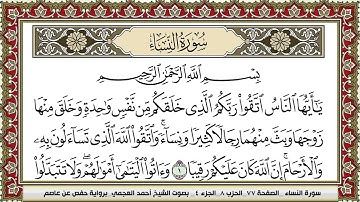 سُورَةُ النِّسَاءِ
بِسْمِ اللَّهِ الرَّحْمَٰنِ الرَّحِيمِ
يَا أَيُّهَا النَّاسُ اتَّقُوا رَبَّكُمُ الَّذِي خَلَقَكُم مِّن نَّفْسٍ وَاحِدَةٍ وَخَلَقَ مِنْهَا
زَوْجَهَا وَبَثَّ مِنْهُمَا رِجَالًا كَثِيرًا وَنِسَاءً وَاتَّقُوا اللَّهَ الَّذِي تَسَاءَلُونَ بِهِ
وَالْأَرْحَامَ إِنَّ اللَّهَ كَانَ عَلَيْكُمْ رَقِيبًا ١ وَآتُوا الْيَتَامَىٰ أَمْوَالَهُمْ وَلَا تَتَبَدَّلُوا
سورة النساء _ الصفحة ٧٧_ الحزب ٨_ الجزء ٤_ بصوت الشيخ أحمد العجمي_ برواية حفص عن عاصم